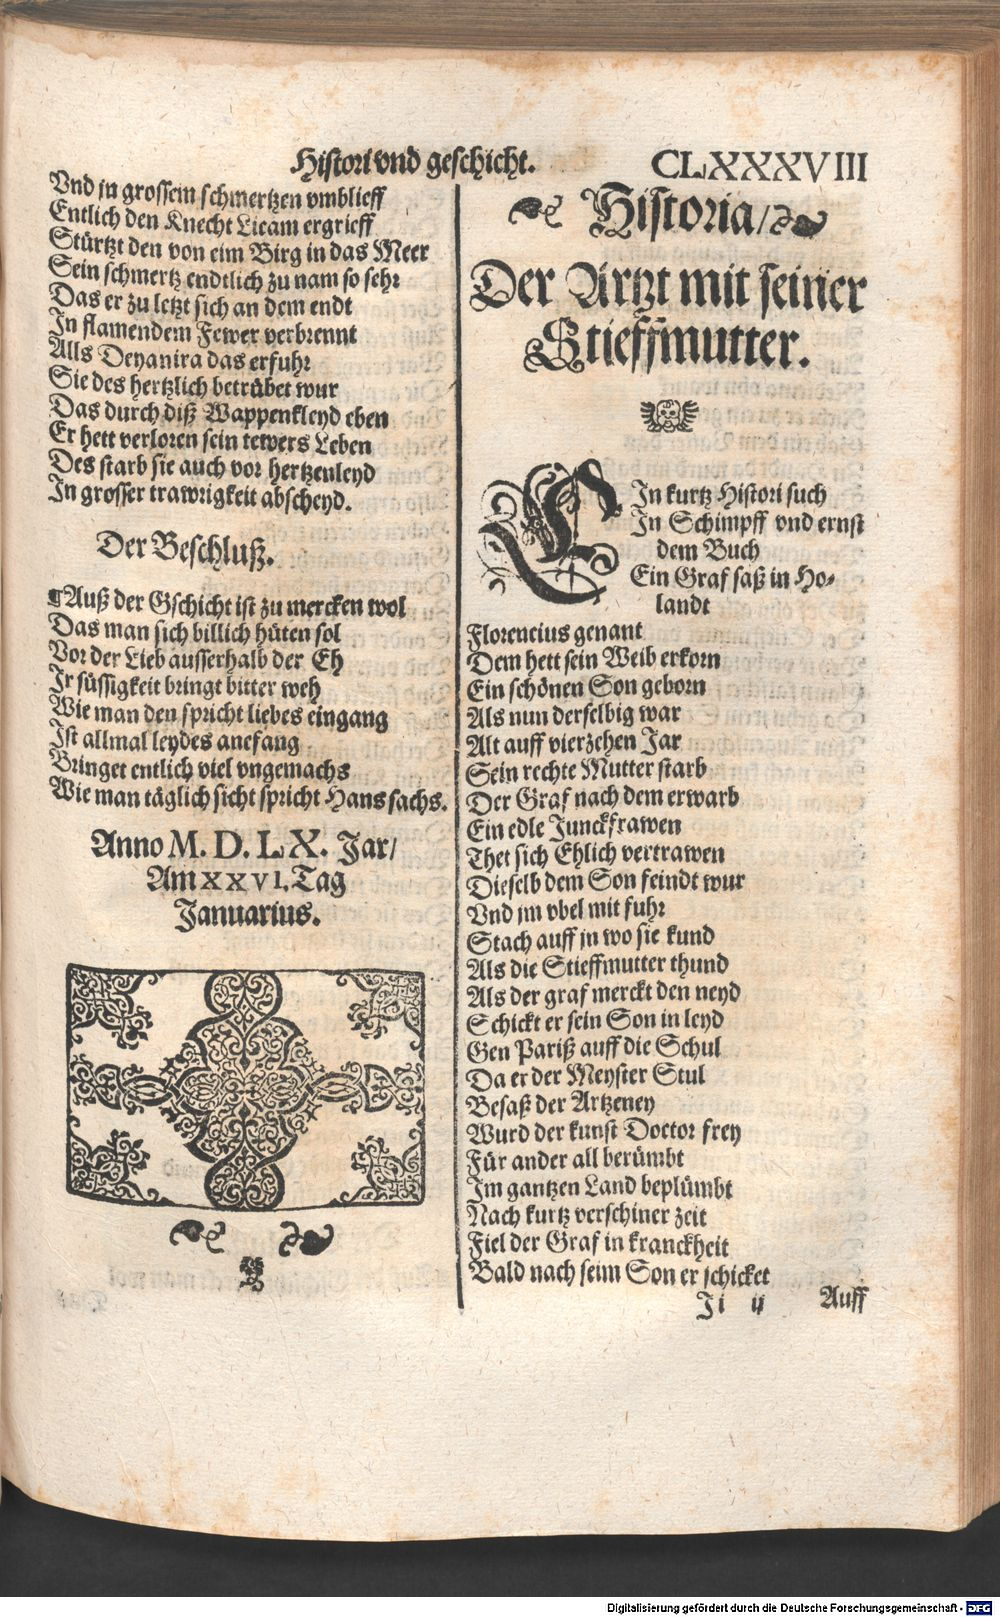 Histori vnd geschicht.
CLXXXVIII
Vnd in grossem schmertzen vmblieff
Entlich den Knecht Licam ergrieff
Stürtzt den von eim Birg in das Meer
Sein schmertz endtlich zu nam so sehr
Das er zu letzt sich an dem endt
In flamendem Fewer verbrennt
Alls Deyanira das erfuhr
Sie des hertzlich betrübet wur
Das durch diß Wappenkleyd eben
Er hett verloren sein tewers Leben
Des starb sie auch vor hertzenleyd
In grosser trawrigkeit abscheyd.
Der Beschluß.
¶Auß der Gschicht ist zu mercken wol
Das man sich billich hüten sol
Vor der Lieb ausserhalb der Eh
Jr süssigkeit bringt bitter weh
Wie man den spricht liebes eingang
Ist allmal leydes anefang
Bringet entlich viel vngemachs
Wie man täglich sicht spricht Hans sachs.
Anno M. D. LX. Jar/
Am XXVI. Tag
Januarius.
Historia/
Der Artzt mit seiner
Stieffmutter.
EIn kurtz Histori such
In Schimpff vnd ernst
dem Buch
Ein Graf saß in Ho-
landt
Florencius genant
Dem hett sein Weib erkorn
Ein schönen Son geborn
Als nun derselbig war
Alt auff vierzehen Jar
Sein rechte Mutter starb
Der Graf nach dem erwarb
Ein edle Junckfrawen
Thet sich Ehlich vertrawen
Dieselb dem Son feindt wur
Vnd im vbel mit fuhr
Stach auff in wo sie kund
Als die Stieffmutter thund
Als der graf merckt den neyd
Schickt er sein Son in leyd
Gen Pariß auff die Schul
Da er der Meyster Stul
Besaß der Artzeney
Wurd der kunst Doctor frey
Für ander all berümbt
Im gantzen Land beplümbt
Nach kurtz verschiner zeit
Fiel der Graf in kranckheit
Bald nach seim Son er schicket
Ji ij Auff
Digitalisierung gefördert durch die Deutsche Forschungsgemeinschaft - DFG